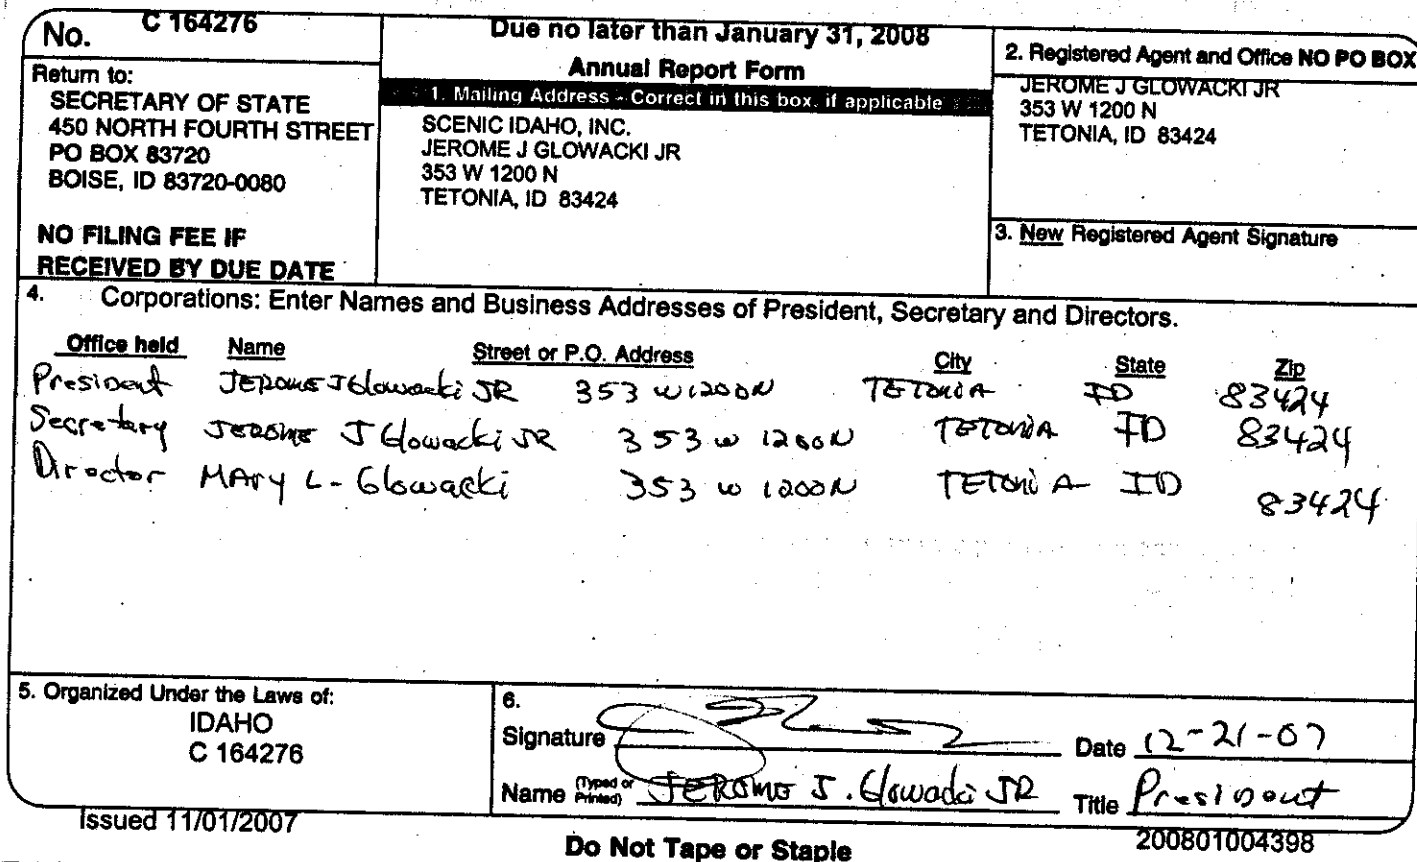 No. C 164276
Return to:
SECRETARY OF STATE
450 NORTH FOURTH STREET
PO BOX 83720
BOISE, ID 83720-0080
NO FILING FEE IF
RECEIVED BY DUE DATE
Due no later than January 31, 2008
Annual Report Form
1. Mailing Address - Correct in this box, if applicable
SCENIC IDAHO, INC.
JEROME J GLOWACKI JR
353 W 1200 N
TETONIA, ID 83424
2. Registered Agent and Office NO PO BOX
JEROME J GLOWACKI JR
353 W 1200 N
TETONIA, ID 83424
3. New Registered Agent Signature
4. Corporations: Enter Names and Business Addresses of President, Secretary and Directors.
Office held Name Street or P.O. Address City State Zip
President JEROME J Glowacki JR 353 W 1200 N TETONIA ID 83424
Secretary JEROME J Glowacki JR 353 W 1200 N TETONIA ID 83424
Director MAry L - Glowacki 353 W 1200 N TETONIA ID 83424
5. Organized Under the Laws of:
IDAHO
C 164276
6.
Signature Date 12-21-07
Name (Typed or Printed) JEROME J. Glowacki JR Title President
Issued 11/01/2007
Do Not Tape or Staple
200801004398